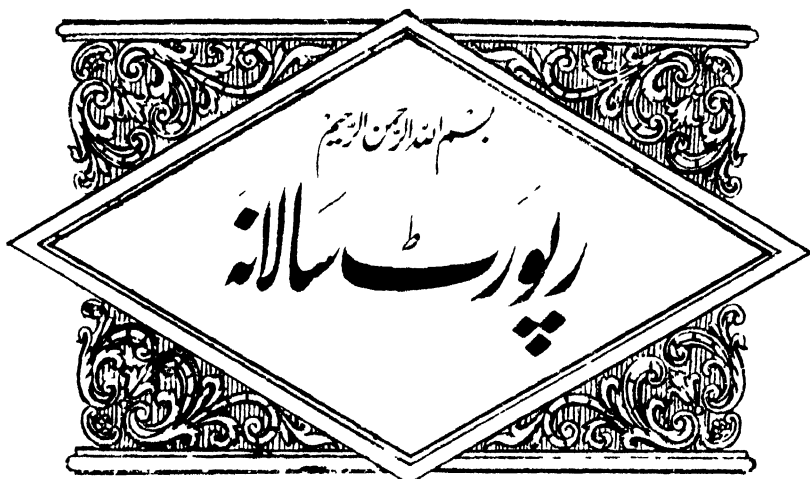 بسم اللہ الرحمن الرحیم
رپورٹ سالانہ